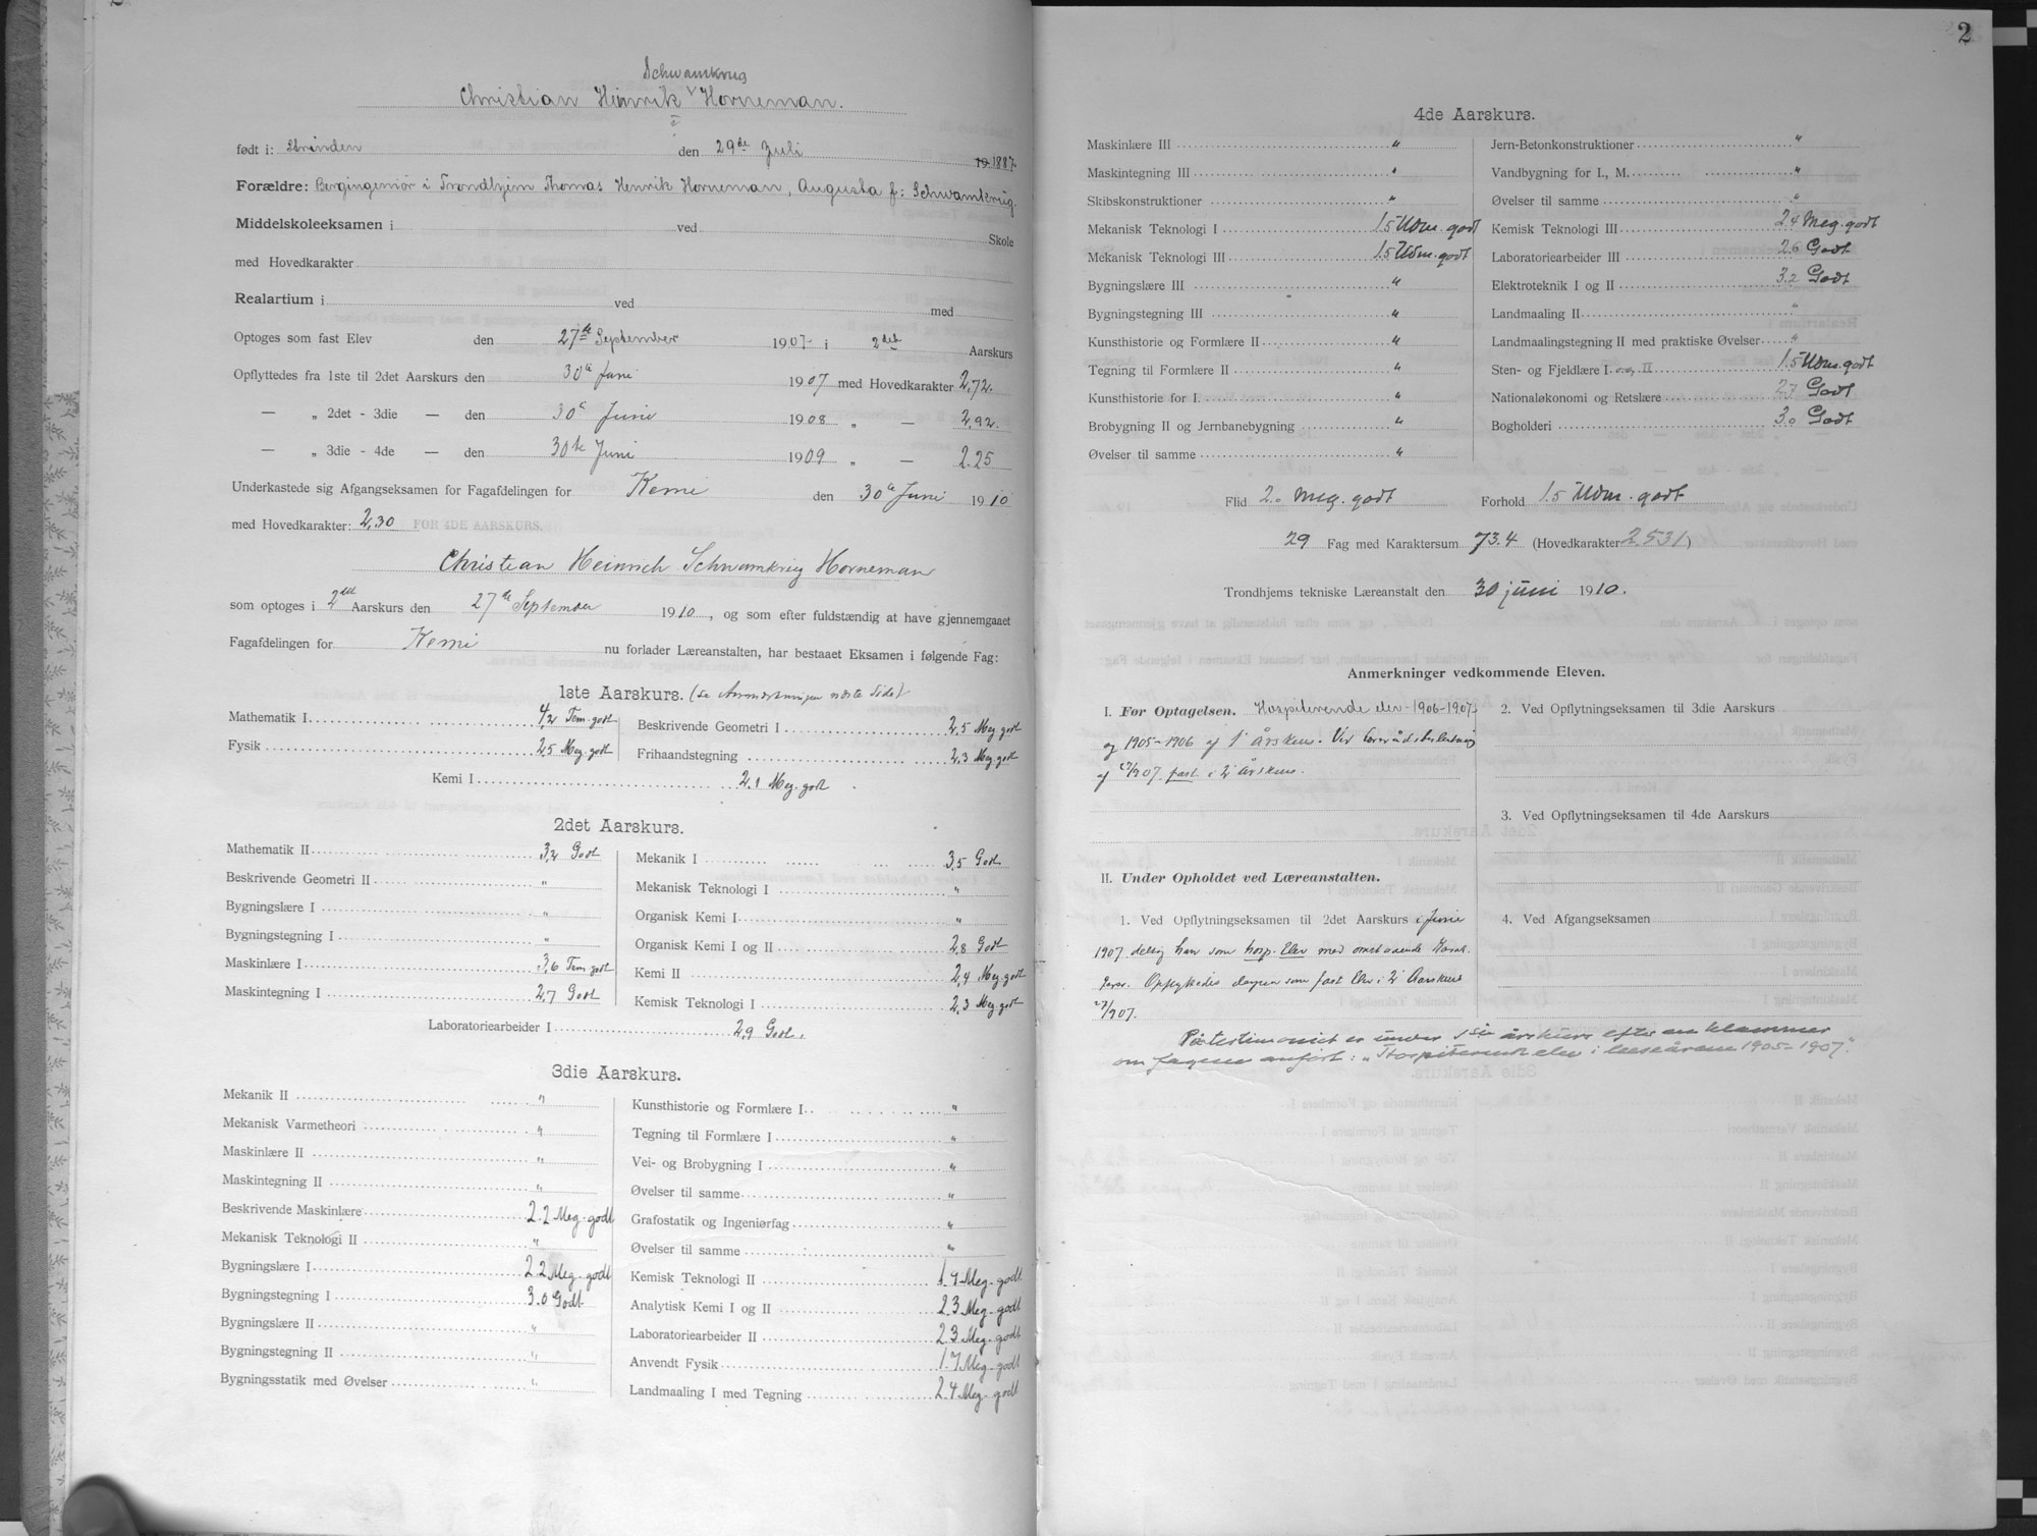 Schwamkrug
Christian Hinrik ˅ Horneman.
født i: Strinden den 29de Juli 19 1887
Forældre: Bergingeniør i Trondhjem Thomas Henrik Horneman, Augusta f: Schwamkrug.
Middelskoleeksamen i ved Skole
med Hovedkarakter
Realartium i ved med
Optoges som fast Elev den 27de September 1907 i 2det Aarskurs
Opflyttedes fra 1ste til 2det Aarskurs den 30te Juni 1907 med Hovedkarakter 2,72.
— „ 2det - 3die — den 30te Juni 1908 „ — 2,92.
— „ 3die - 4de — den 30te Juni 1909 „ — 2.25
Underkastede sig Afgangseksamen for Fagafdelingen for Kemi den 30te Juni 1910
med Hovedkarakter: 2,30 FOR 4DE AARSKURS.
Christian Heinrich Schwamkrug Horneman
som optoges i 2det Aarskurs den 27de September 1910, og som efter fuldstændig at have gjennemgaaet
Fagafdelingen for Kemi nu forlader Læreanstalten, har bestaaet Eksamen i følgende Fag:
1ste Aarskurs. (se Anmerkningen næste Side)
Mathematik I 4,2 Tem. godt
Beskrivende Geometri I 2,5 Meg godt
Fysik 2,5 Meg. godt
Frihaandstegning 2,3 Meg. godt
Kemi I 2,1 Meg. godt
2det Aarskurs.
Mathematik II 3,2 Godt
Mekanik I 3,5 Godt
Beskrivende Geometri II "
Mekanisk Teknologi I "
Bygningslære I "
Organisk Kemi I "
Bygningstegning I "
Organisk Kemi I og II 2,8 Godt
Maskinlære I 3,6 Tem godt
Kemi II 2,4 Meg. godt
Maskintegning I 2,7 Godt
Kemisk Teknologi I 2,3 Meg. godt
Laboratoriearbeider I 2,9 Godt.
3die Aarskurs.
Mekanik II "
Kunsthistorie og Formlære I "
Mekanisk Varmetheori "
Tegning til Formlære I "
Maskinlære II "
Vei- og Brobygning I "
Maskintegning II "
Øvelser til samme "
Beskrivende Maskinlære 2.2 Meg. godt
Grafostatik og Ingeniørfag "
Mekanisk Teknologi II "
Øvelser til samme "
Bygningslære I 2.2 Meg. godt
Kemisk Teknologi II 1.9 Meg. godt
Bygningstegning I 3.0 Godt
Analytisk Kemi I og II 2.3 Meg. godt
Bygningslære II "
Laboratoriearbeider II 2.3 Meg. godt
Bygningstegning II "
Anvendt Fysik 1.7 Meg. godt
Bygningsstatik med Øvelser "
Landmaaling I med Tegning 2.4 Meg. godt
2
4de Aarskurs.
Maskinlære III "
Jern-Betonkonstruktioner "
Maskintegning III "
Vandbygning for I., M. "
Skibskonstruktioner "
Øvelser til samme "
Mekanisk Teknologi I 1.5 Udm. godt
Kemisk Teknologi III 2.4 Meg. godt
Mekanisk Teknologi III 1.5 Udm. godt
Laboratoriearbeider III 2.6 Godt
Bygningslære III "
Elektroteknik I og II 3.2 Godt
Bygningstegning III "
Landmaaling II "
Kunsthistorie og Formlære II "
Landmaalingstegning II med praktiske Øvelser "
Tegning til Formlære II "
Sten- og Fjeldlære I og II 1.5 Udm. godt
Kunsthistorie for I. "
Nationaløkonomi og Retslære 2.7 Godt
Brobygning II og Jernbanebygning "
Bogholderi 3.0 Godt
Øvelser til samme "
Flid 2.0 Meg. godt Forhold 1.5 Udm. godt
29 Fag med Karaktersum 73.4 (Hovedkarakter 2.531)
Trondhjems tekniske Læreanstalt den 30 juni 1910.
Anmerkninger vedkommende Eleven.
I. Før Optagelsen. Hospiterende elev 1906-1907
og 1905-1906 af 1' årskurs. Ved
af 27/9 07 fast i 2' årskurs.
2. Ved Opflytningseksamen til 3die Aarskurs
3. Ved Opflytningseksamen til 4de Aarskurs
II. Under Opholdet ved Læreanstalten.
1. Ved Opflytningseksamen til 2det Aarskurs i Juni
1907 deltog han som hosp. Elev med omstaaende Karak-
terer. Opflyttedes som fast Elev i 2' Aarskurs
27/9 07.
4. Ved Afgangseksamen
På testimoniet er under 1ste årskurs efter en klammer
om fagene anført: „Hospiterende elev i læseårene 1905-1907".